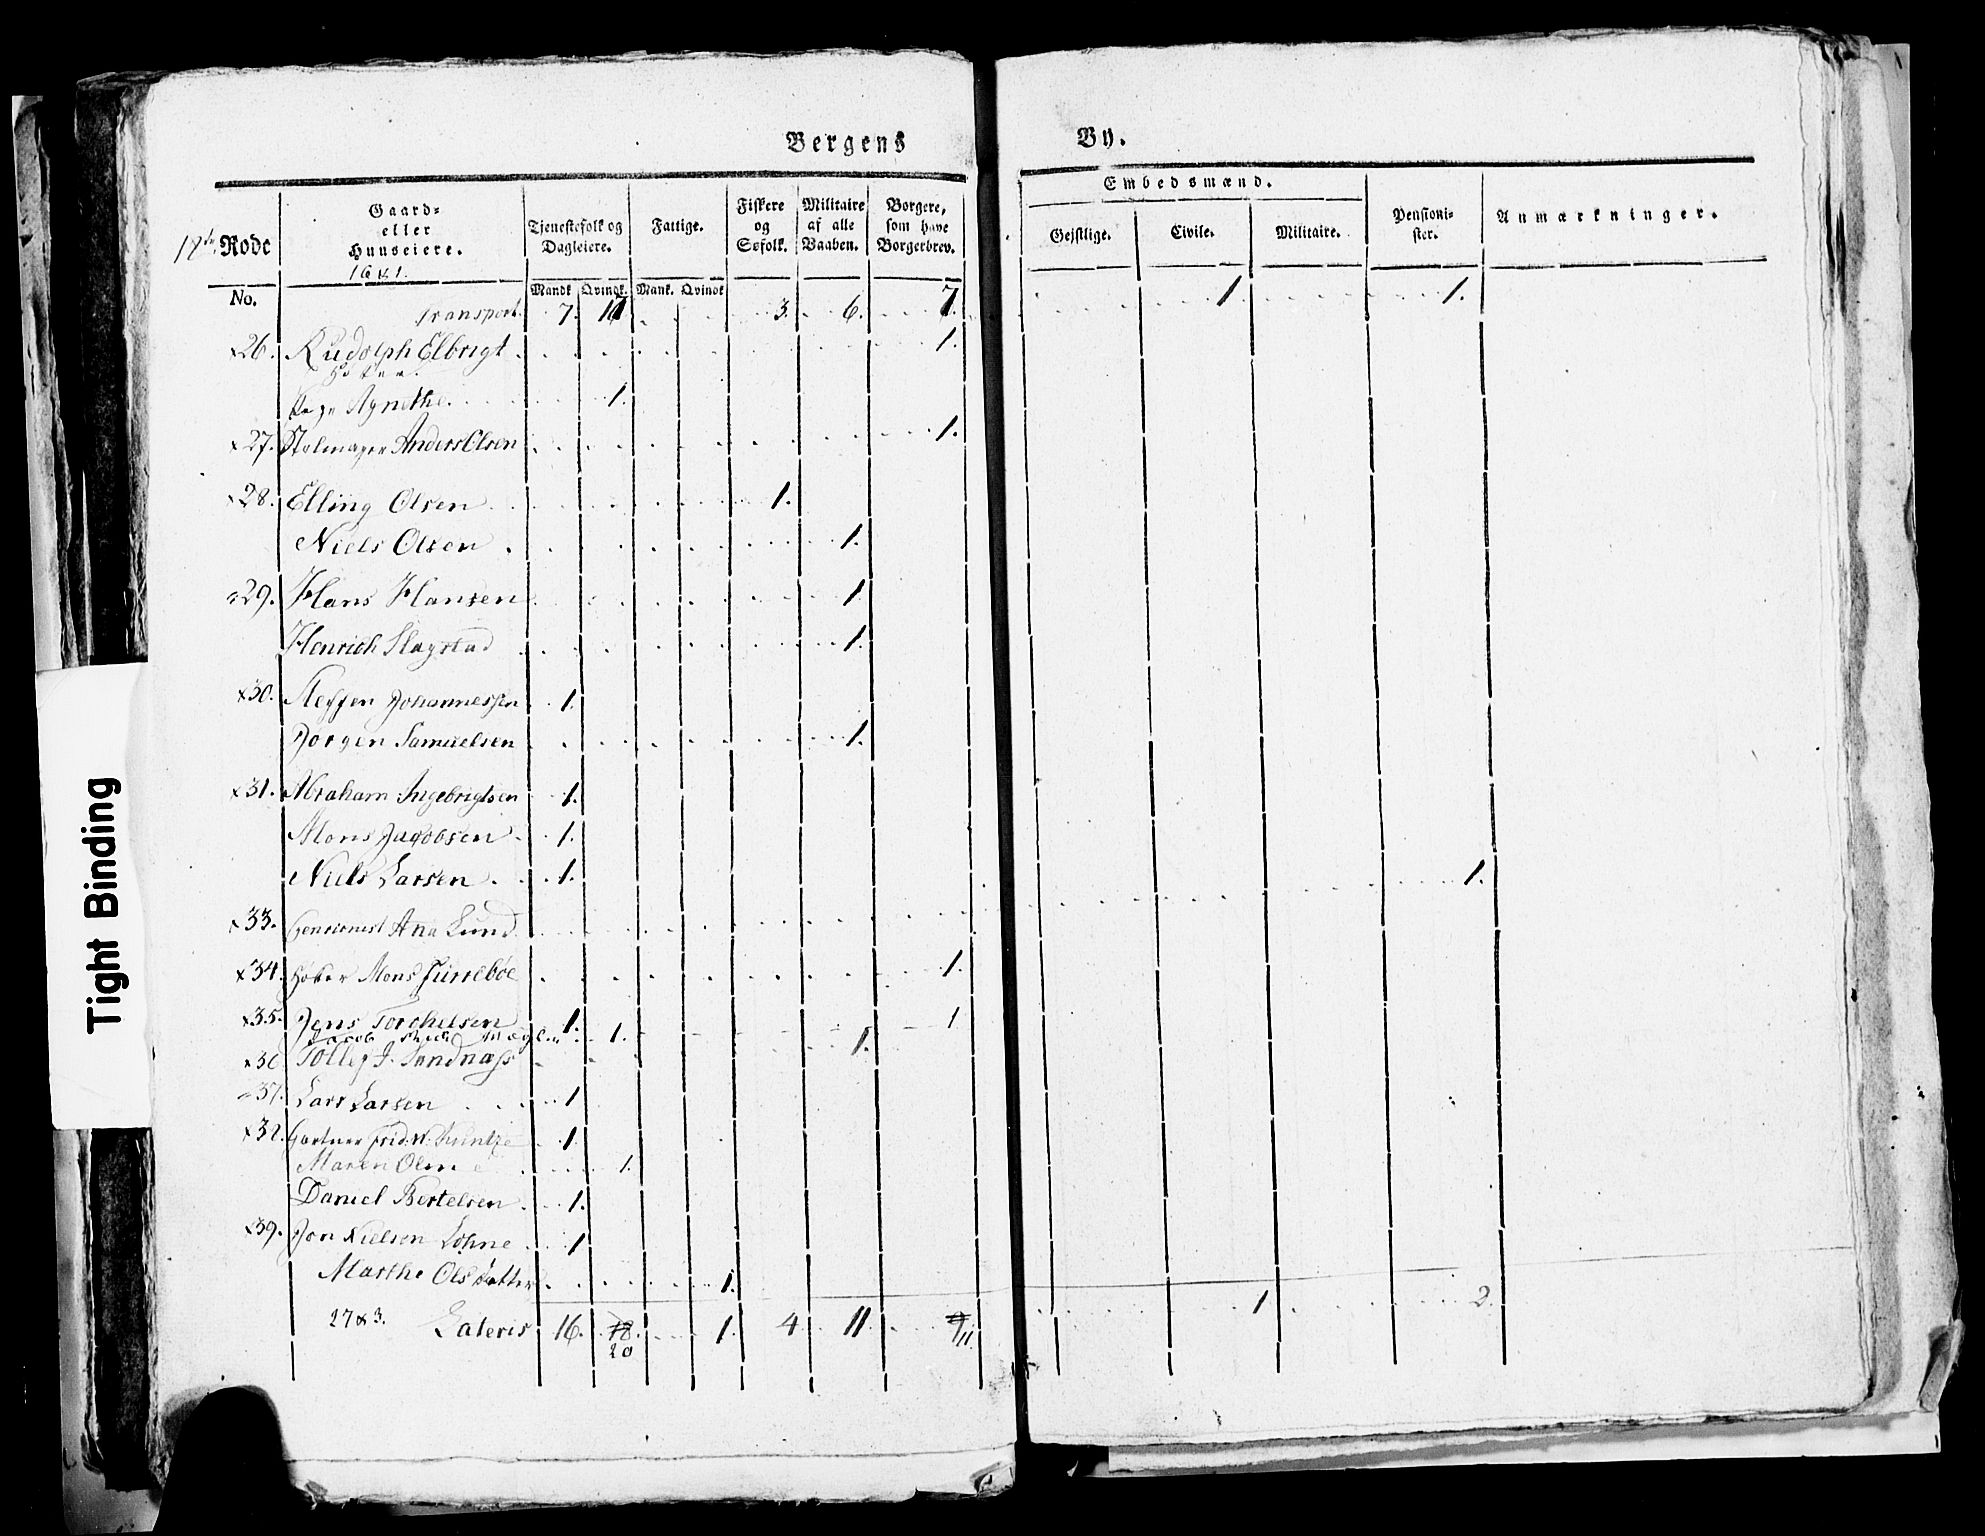 Bergens By.
Embedsmænd.
18de Rode
Gaard- eller Huuseiere.
Tjenestefolk og Dagleiere.
Fattige.
Fiskere og Søfolk.
Militaire af alle Vaaben.
Borgere, som have Borgerbrev.
Gejstlige.
Civile.
Militaire.
Pensioni- ster.
Anmærkninger.
16 & 1.
No.
Mandk Qvindk. Mank. Qvindk
Transport. 7. 17 3. 6. 7. 1 1.
x26. Rudolph Elbrigt 1.
Agnethe. 1.
x27. Anders Olsen 1.
x28. Elling Olsen 1.
Niels Olsen 1.
x29. Hans Hansen 1.
Henrich Slagstad 1.
x30. Steffen Johannessen 1.
Jørgen Samuelsen 1.
x31. Abraham Ingebrigtsen 1.
Mons Jacobsen 1.
Niels Larsen 1.
x33. Pensionist Ana Lund 1.
x34. Høker Mons 1.
x35. Jens Torchelsen 1. 1
Jacob 1.
x36 Tollef J. Sundnæss 1.
x37. Lars Larsen 1
x32. Gartner Frid. W. Kuntze 1.
Maren Olsen 1.
Daniel Bertelsen 1.
x39. Jon Nielsen Løhne 1
Marthe Olsdatter 1.
27 & 3. Lateris 16. 18. 1. 4 11 9 1 2.
20 11
Tight Binding